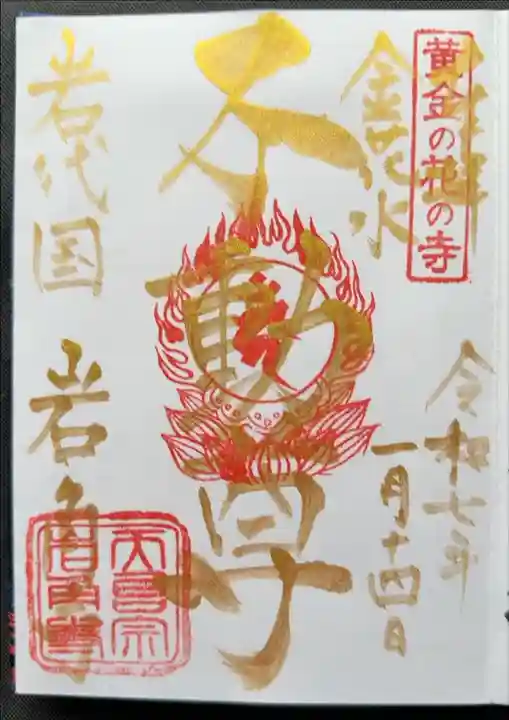 黄金の花の寺
金花水
令和七年
一月十四日
不動尊
岩代国 岩角寺
天台宗
岩角寺